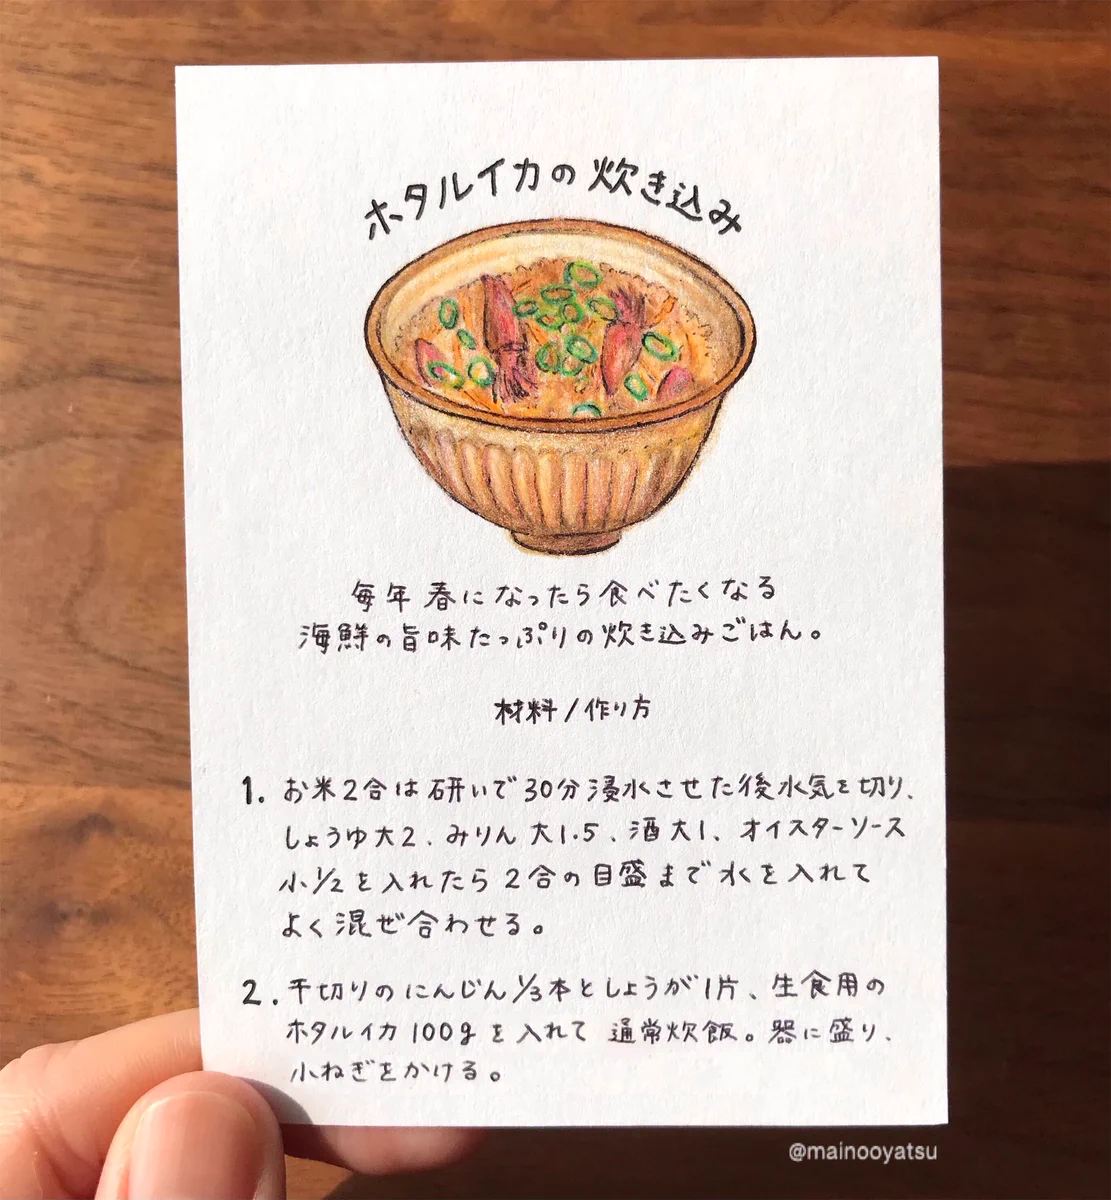 ホタルイカの炊き込み
毎年春になったら食べたくなる
海鮮の旨味たっぷりの炊き込みごはん。
材料/作り方
1. お米2合は研いで30分浸水させた後水気を切り、
しょうゆ大2、みりん大1.5、酒大1、オイスターソース
小1/2を入れたら2合の目盛まで水を入れて
よく混ぜ合わせる。
2. 千切りのにんじん1/3本としょうが1片、生食用の
ホタルイカ100gを入れて通常炊飯。器に盛り、
小ねぎをかける。
@mainooyatsu